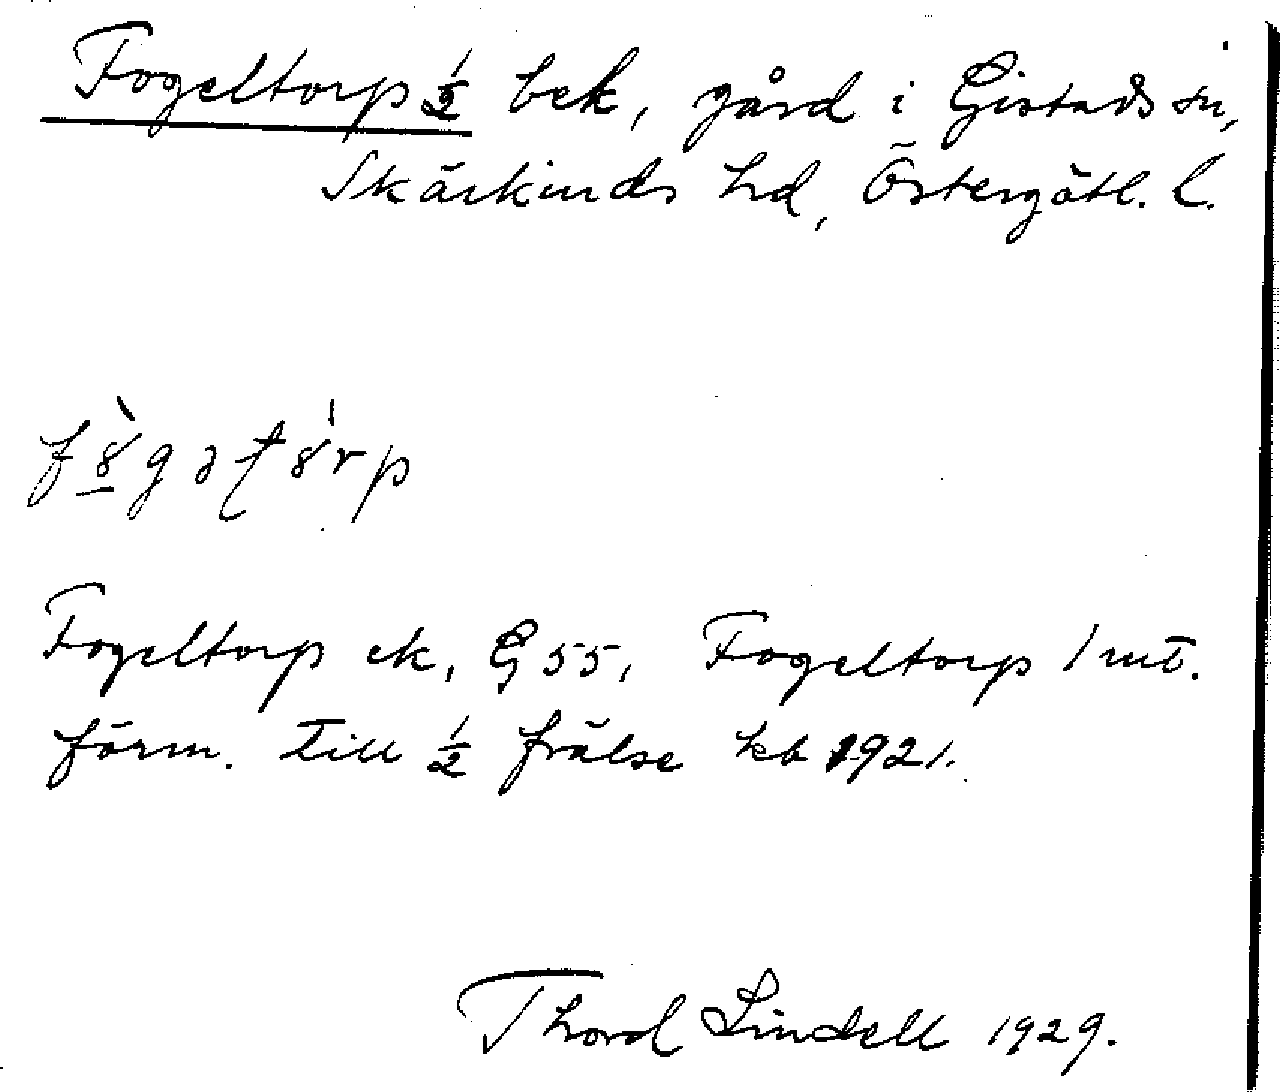 Fogeltorp ½ bek, gård i Gistads sn,
Skärkinds hd, Östergötl. l.
Fogeltorp ek, G 55, Fogeltorp 1 mt.
förm. Till ½ frälse kb 1921.
Thord Lindell 1929.